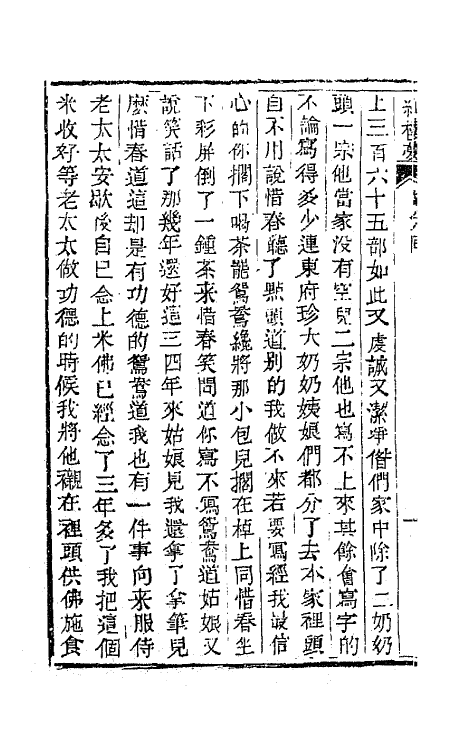 紅樓夢
上三百六十五部如此又虔誠又潔爭偺們家中除了二奶奶
頭一宗他當家没有空兒二宗他也寫不上來其餘會寫字的
不論寫得多少連東府珍大奶奶姨娘們都分了去本家裡頭
自不用說惜春聽了㸃頭道别的我做不來若要寫經我最信
心的你擱下喝茶罷鴛鴦纔將那小包兒擱在棹上同惜春坐
下彩屏倒了一鍾茶来惜春笑問道你寫不寫鴛鴦道姑娘又
說笑話了那幾年還好這三四年來姑娘見我還拿了拿筆兒
麽惜春道這却是有功德的鴛鴦道我也有一件事向来服侍
老太太安歇後自己念上米佛已經念了三年多了我把這個
米收好等老太太做功德的時候我將他襯在裡頭供佛施食